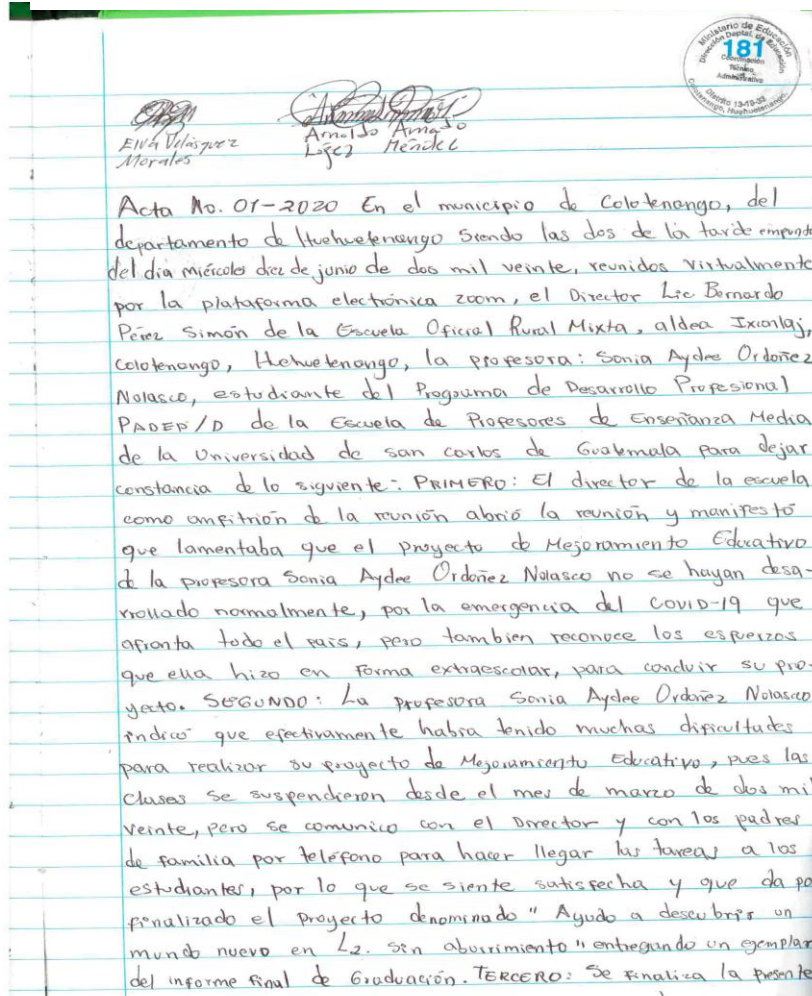 Ministerio de Educación
Dirección Deptal. de Educación
181
Coordinación
Técnico
Administrativa
Distrito 13-19-33
Colotenango, Huehuetenango.
Elva Velásquez
Morales
Arnoldo Amado
López Méndez
Acta No. 01-2020 En el municipio de Colotenango, del
departamento de Huehuetenango siendo las dos de la tarde empunto
del día miércoles diez de junio de dos mil veinte, reunidos virtualmente
por la plataforma electrónica zoom, el Director Lic Bernardo
Pérez Simón de la Escuela Oficial Rural Mixta, aldea Ixconlaj,
Colotenango, Hehuetenango, la profesora: Sonia Aydee Ordoñez
Nolasco, estudiante del Programa de Desarrollo Profesional
PADEP/D de la Escuela de Profesores de Enseñanza Media
de la Universidad de san carlos de Guatemala para dejar
constancia de lo siguiente: PRIMERO: El director de la escuela
como anfitrión de la reunión abrió la reunión y manifestó
que lamentaba que el proyecto de Mejoramiento Educativo
de la profesora Sonia Aydee Ordoñez Nolasco no se hayan desa-
rrollado normalmente, por la emergencia del COVID-19 que
afronta todo el país, pero tambien reconoce los esfuerzos
que ella hizo en Forma extraescolar, para concluir su pro-
yecto. SEGUNDO: La profesora Sonia Aydee Ordoñez Nolasco
indicó que efectivamente había tenido muchas dificultades
para realizar su proyecto de Mejoramiento Educativo, pues las
clases se suspendieron desde el mes de marzo de dos mil
veinte, pero se comunico con el Director y con los padres
de familia por teléfono para hacer llegar las tareas a los
estudiantes, por lo que se siente satisfecha y que da po
finalizado el proyecto denominado "Ayudo a descubrir un
mundo nuevo en L2. sin aburrimiento" entregando un ejemplar
del informe final de Graduación. TERCERO: Se finaliza la presente